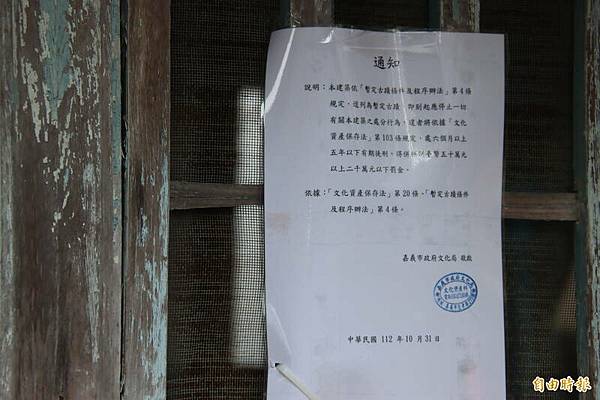 通知
說明：本建築依「暫定古蹟條件及程序辦法」第4條
規定，逕列為暫定古蹟，即刻起應停止一切
有關本建築之處分行為，違者將依據「文化
資產保存法」第103條規定，處六個月以上
五年以下有期徒刑，得併科新臺幣五十萬元
以上二千萬元以下罰金。
依據：「文化資產保存法」第20條、「暫定古蹟條件
及程序辦法」第4條。
嘉義市政府文化局 敬啟
文化資產科
中華民國 112 年 10 月 31 日
自由時報